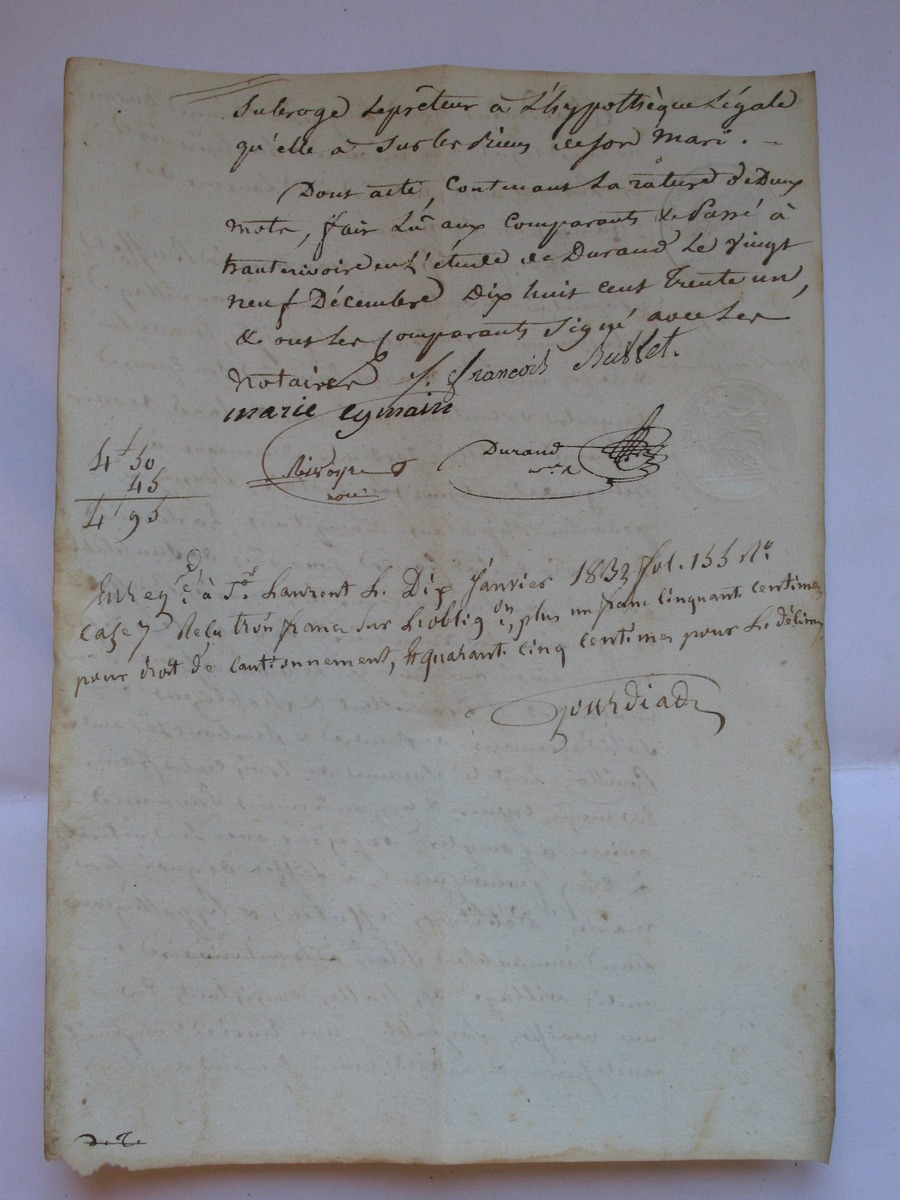 subroge le prêteur à l'hypothèque légale
qu'elle a sur les biens de son mari. –
Dont acte, contenant la rature de deux
mots, fait lu aux comparants & passé à
hauterivoire en l'étude de Durand le vingt
neuf Décembre dix huit cent trente un,
& ont les comparants signé avec les
notaires J. françois Bullet.
marie eymain
Durand
4f 50
45
4f 95
Enregé à St Laurent le Dix Janvier 1832 fol. 155 Ro
case 7 Reçu trois francs sur l'obligon, plus un franc cinquant centimes
pour droit de cautionnement, & quarant cinq centimes pour le décime
Gourdiad